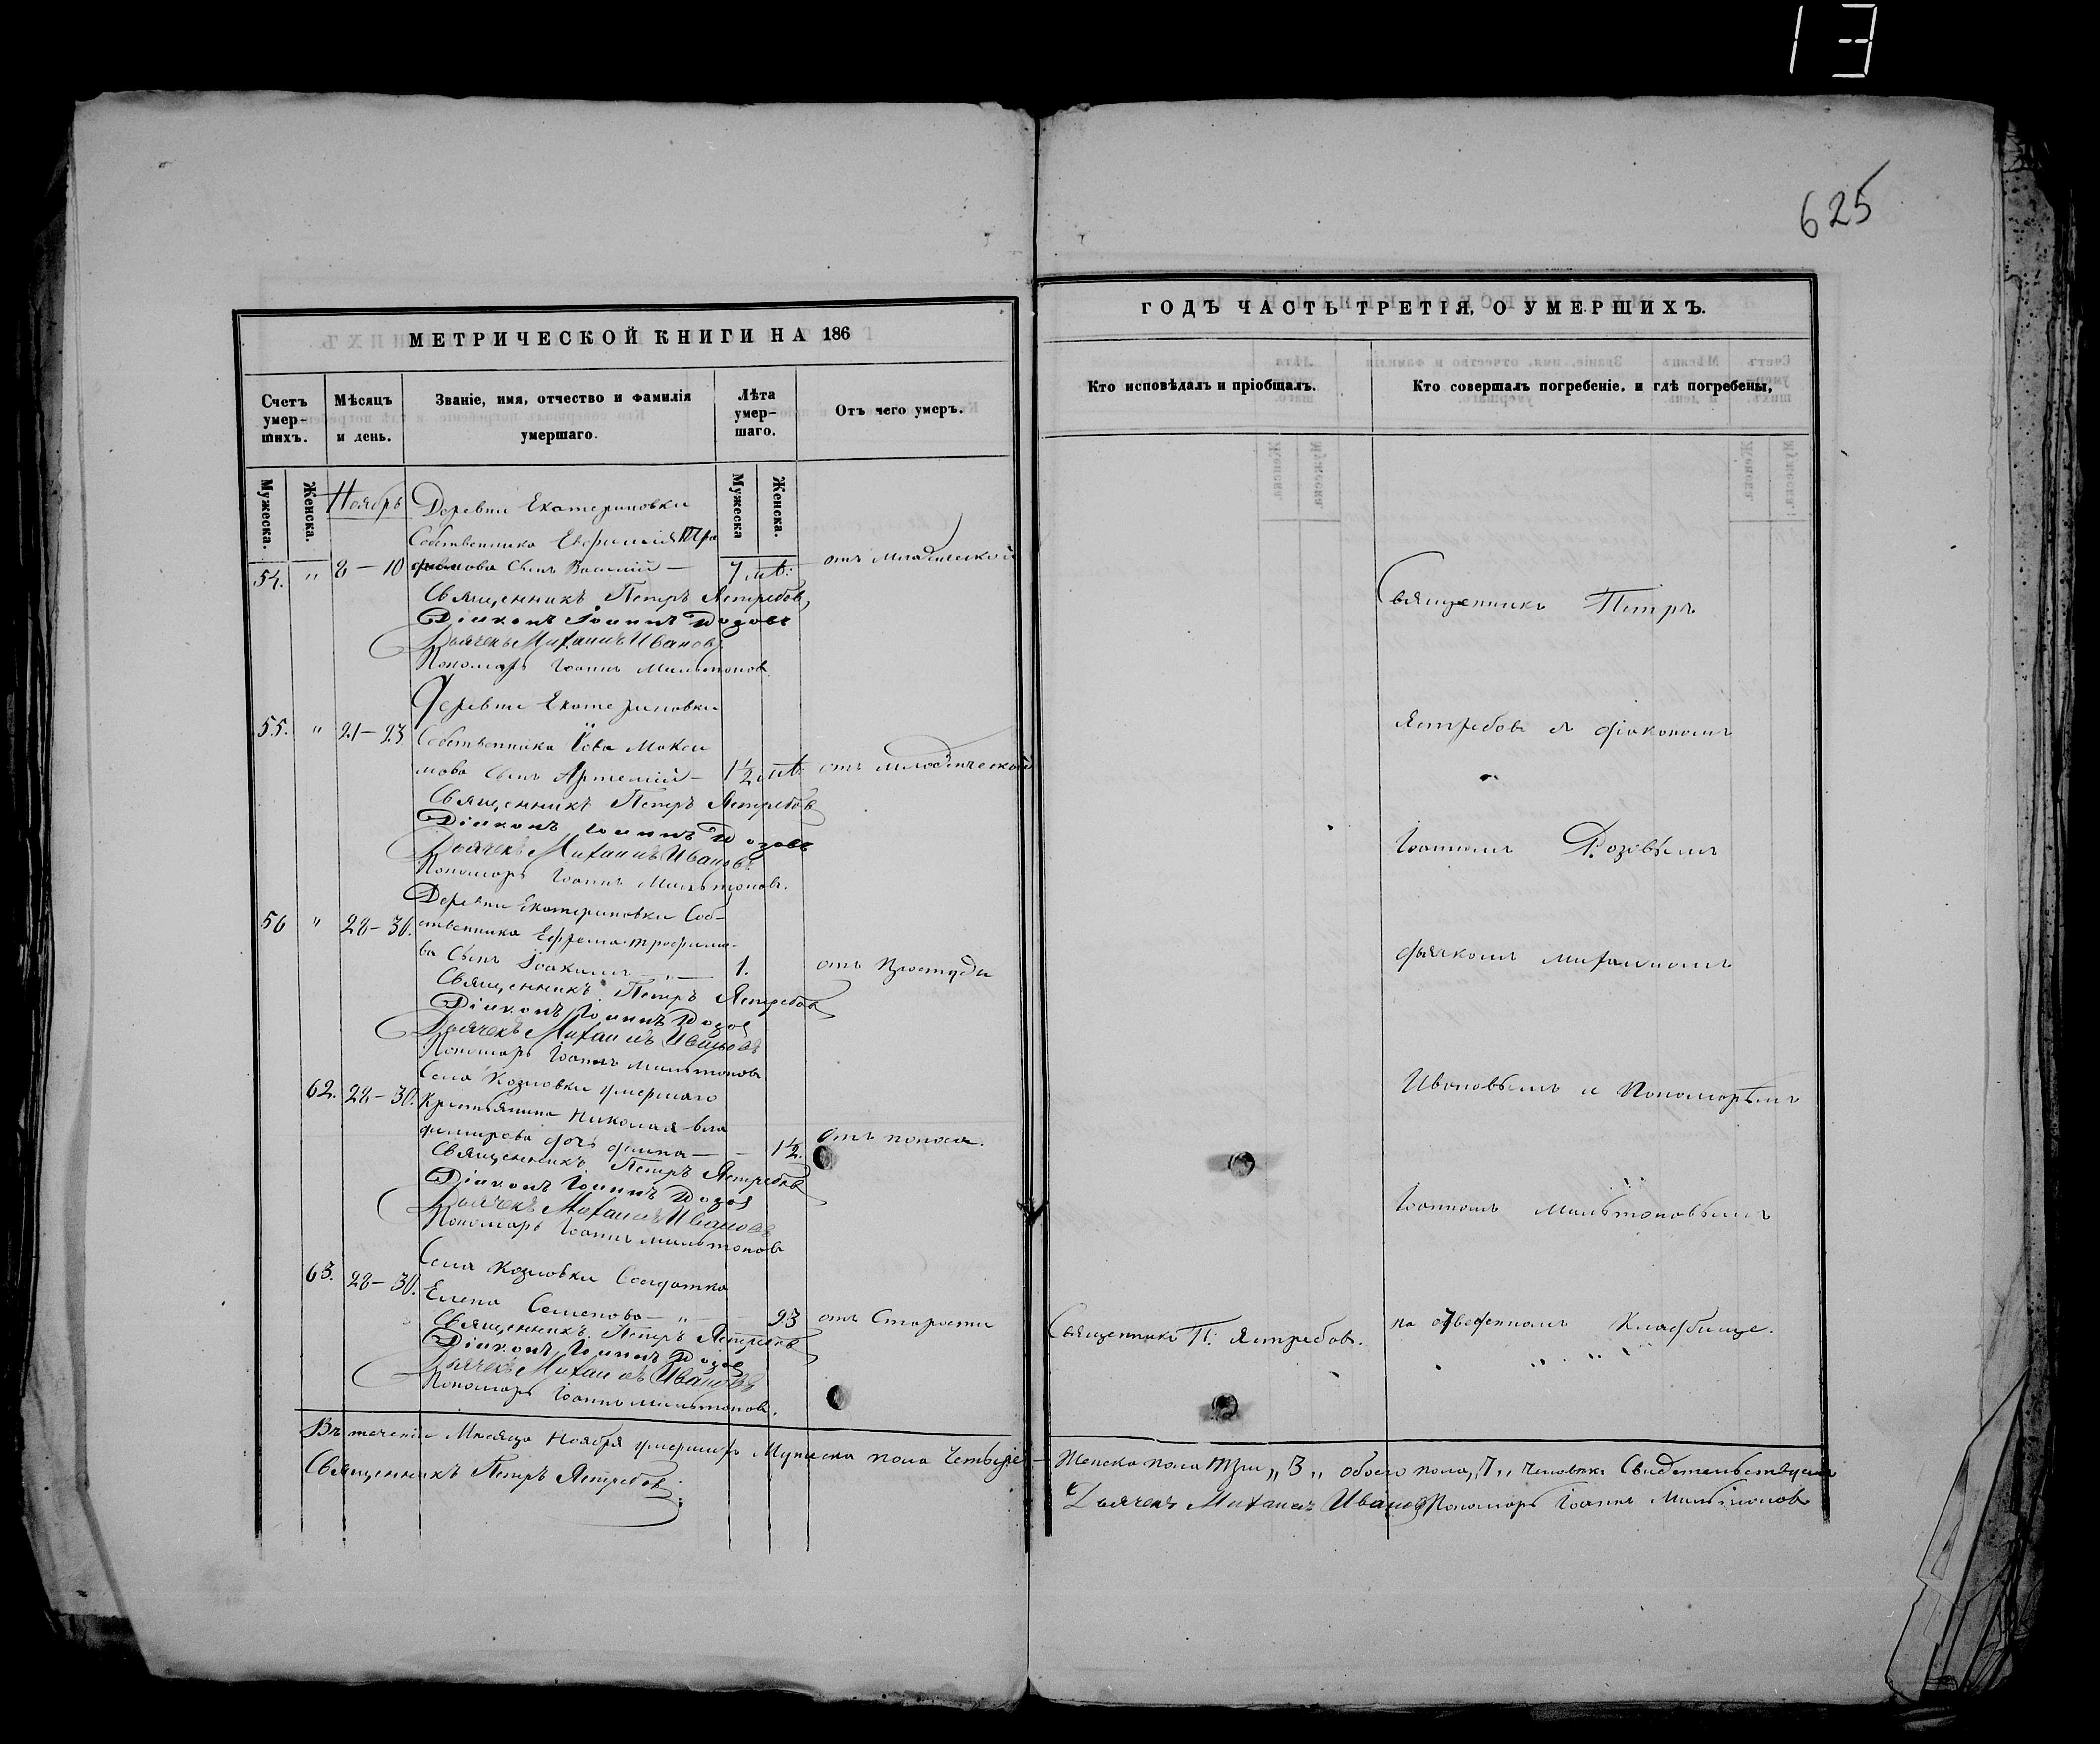 13
625
МЕТРИЧЕСКОЙ КНИГИ НА 186
Счетъ умер-шихъ.
Мѣсяцъ и день.
Званіе, имя, отчество и фамилія умершаго.
Лѣта умер-шаго.
Отъ чего умеръ.
Мужеска.
Женска.
Мужеска
Женска.
Ноябрь
Деревни Екатериновки
Собственника Евфимія Тро
54. " 8 – 10 фимова сынъ Василій — 7 лѣт: отъ младенческой
Священникъ Петръ Ястребовъ
Діаконъ Іоаннъ Розовъ
Дьячекъ Михаилъ Ивановъ
Пономарь Іоаннъ Мильтоновъ
Деревни Екатериновки
55. " 21 – 23 Собственника Іова Макси
мова сынъ Артемій — 1½ лѣт: отъ младенческой
Священникъ Петръ Ястребовъ
Діаконъ Іоаннъ Розовъ
Дьячекъ Михаилъ Ивановъ
Пономарь Іоаннъ Мильтоновъ.
Деревни Екатериновки Соб-
56 " 28 – 30. ственника Ефрема Трофимо-
ва сынъ Іоакимъ — " — 1. отъ простуды
Священникъ Петръ Ястребовъ
Діаконъ Іоаннъ Розов
Дьячекъ Михаилъ Ивановъ
Пономарь Іоаннъ Мильтоновъ
Села Козловки умершаго
62. 28 – 30. Крестьянина Николая Вла
димирова дочь — — 1½. отъ поноса.
Священникъ Петръ Ястребовъ
Діаконъ Іоаннъ Розов
Дьячекъ Михаилъ Ивановъ
Пономарь Іоаннъ Мильтоновъ
Села Козловки Солдатка
63. 28 – 30. Елена Семенова — " — 93 отъ Старости
Священникъ Петръ Ястребовъ
Діаконъ Іоаннъ Розов
Дьячекъ Михаилъ Ивановъ
Пономарь Іоаннъ Мильтоновъ.
Въ теченіи Мѣсяца Ноября умершихъ Мужеска пола Четыре
Священникъ Петръ Ястребов
ГОДЪ ЧАСТЬ ТРЕТІЯ, О УМЕРШИХЪ.
Кто исповѣдалъ и пріобщалъ.
Кто совершалъ погребеніе, и гдѣ погребены,
Священникъ Петръ
Ястребовъ съ діакономъ
Іоанномъ Розовымъ
дьячкомъ Михаиломъ
Ивановымъ и Пономарѣмъ
Іоанномъ Мильтоновымъ
Священникъ П: Ястребовъ.
на отведенномъ Кладбище.
Женска пола три „3„ обоего пола „7„ человѣкъ Свидетельствуемъ
Дьячекъ Михаилъ Иванов Пономарь Іоаннъ Мильтоновъ